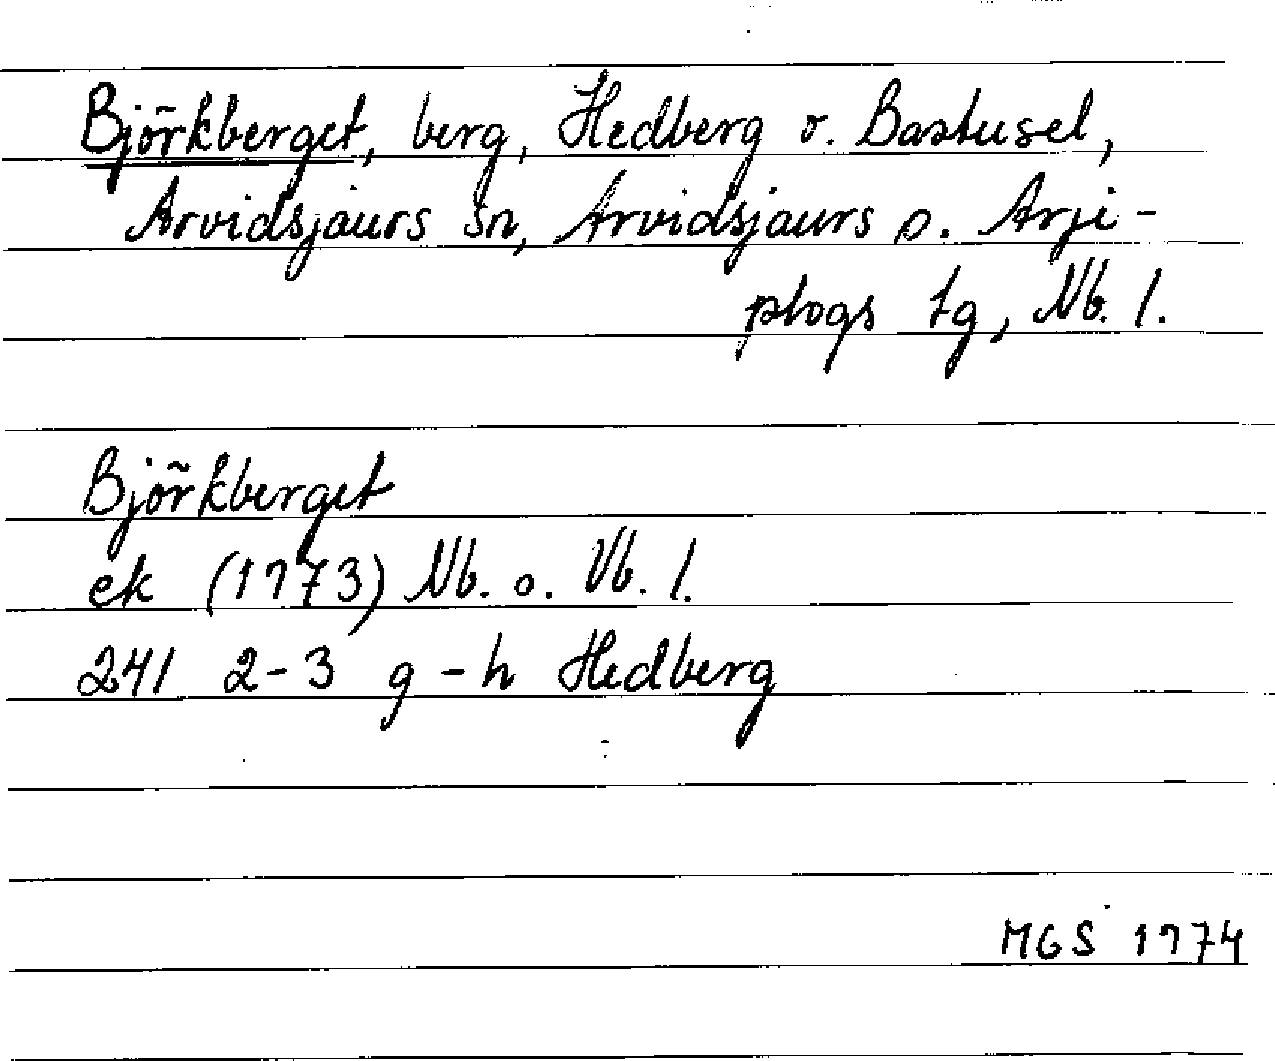 Björkberget, berg, Hedberg o. Bastusel,
Arvidsjaurs sn, Arvidsjaurs o. Arje-
plogs tg, Nb. l.
Björkberget
ek (1973) Nb. o. Vb. l.
241 2-3 g-h Hedberg
MGS 1974